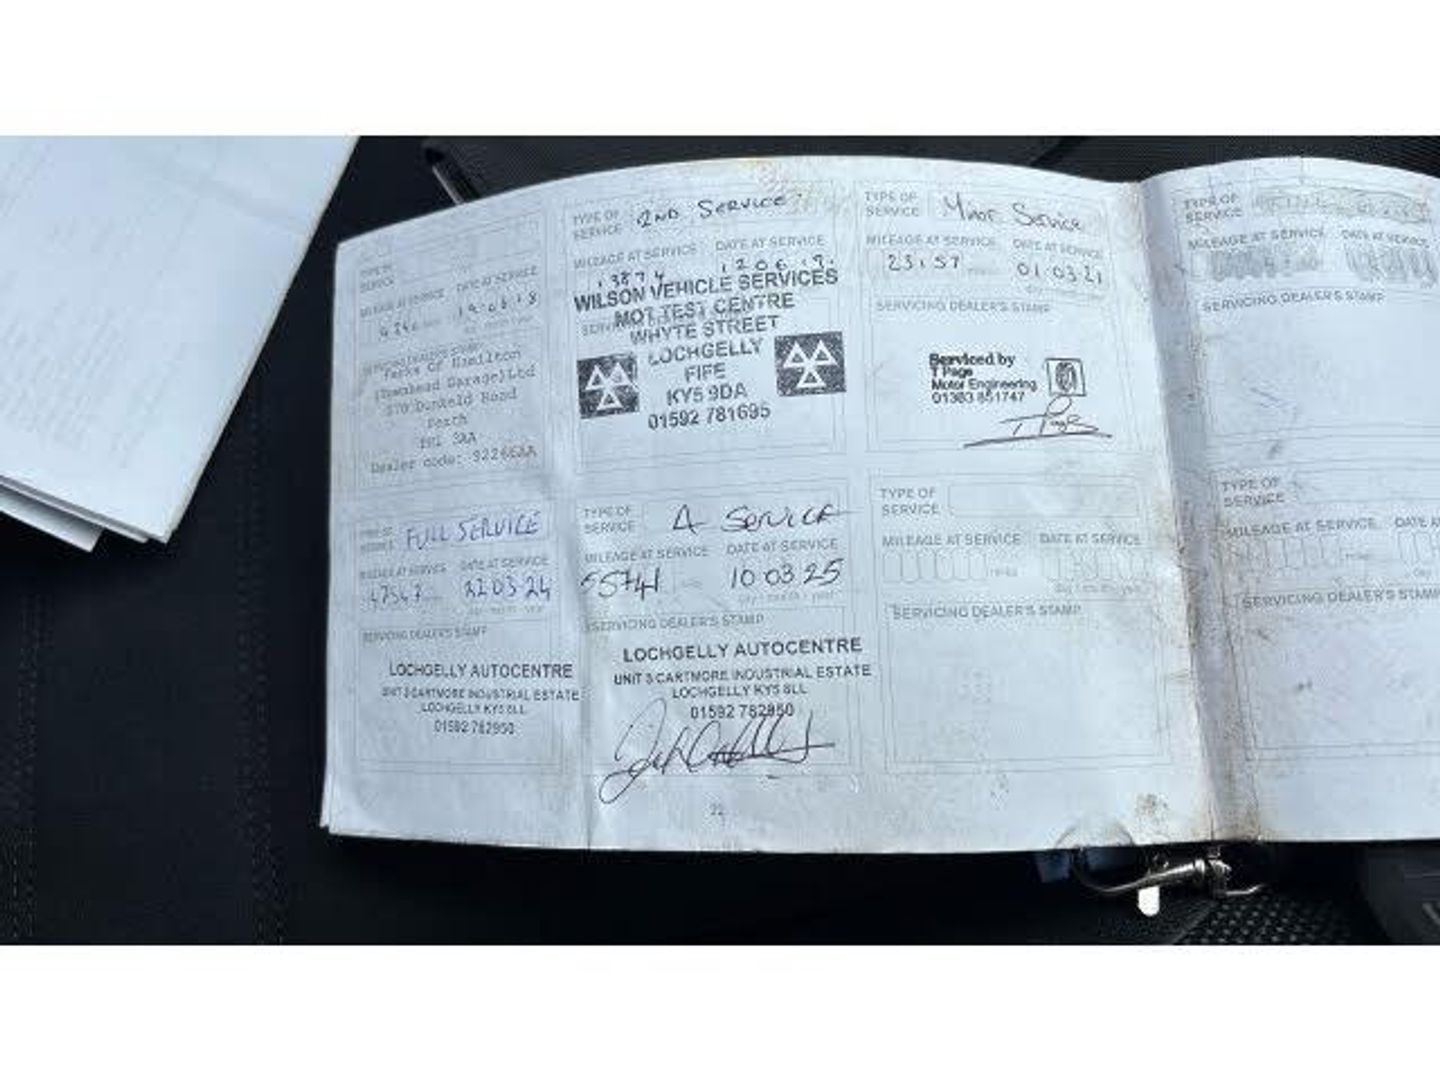 TYPE OF
SERVICE
MILEAGE AT SERVICE DATE AT SERVICE
19 06 18
Parks Of Hamilton
(Townhead Garage)Ltd
370 Dunkeld Road
Perth
PH1 3AA
Dealer code: 92266AA
TYPE OF
SERVICE 2ND SERVICE.
MILEAGE AT SERVICE DATE AT SERVICE
13874 12 06 19.
WILSON VEHICLE SERVICES
MOT TEST CENTRE
WHYTE STREET
LOCHGELLY
FIFE
KY5 9DA
01592 781695
TYPE OF
SERVICE Minor Service
MILEAGE AT SERVICE DATE AT SERVICE
23157 miles 01 03 21
SERVICING DEALER'S STAMP
Serviced by
T Page
Motor Engineering
01383 851747
T Page
TYPE OF
SERVICE FULL SERVICE
MILEAGE AT SERVICE DATE AT SERVICE
47547 22 03 24
day month year
SERVICING DEALER'S STAMP
LOCHGELLY AUTOCENTRE
UNIT 3 CARTMORE INDUSTRIAL ESTATE
LOCHGELLY KY5 8LL
01592 782950
TYPE OF
SERVICE A SERVICE
MILEAGE AT SERVICE DATE AT SERVICE
55741 10 03 25
day month year
SERVICING DEALER'S STAMP
LOCHGELLY AUTOCENTRE
UNIT 3 CARTMORE INDUSTRIAL ESTATE
LOCHGELLY KY5 8LL
01592 782950
TYPE OF
SERVICE
MILEAGE AT SERVICE DATE AT SERVICE
miles day month year
SERVICING DEALER'S STAMP
22
TYPE OF
SERVICE
MILEAGE AT SERVICE DATE AT SERVICE
SERVICING DEALER'S STAMP
TYPE OF
SERVICE
MILEAGE AT SERVICE DATE A
miles day
SERVICING DEALER'S STAMP